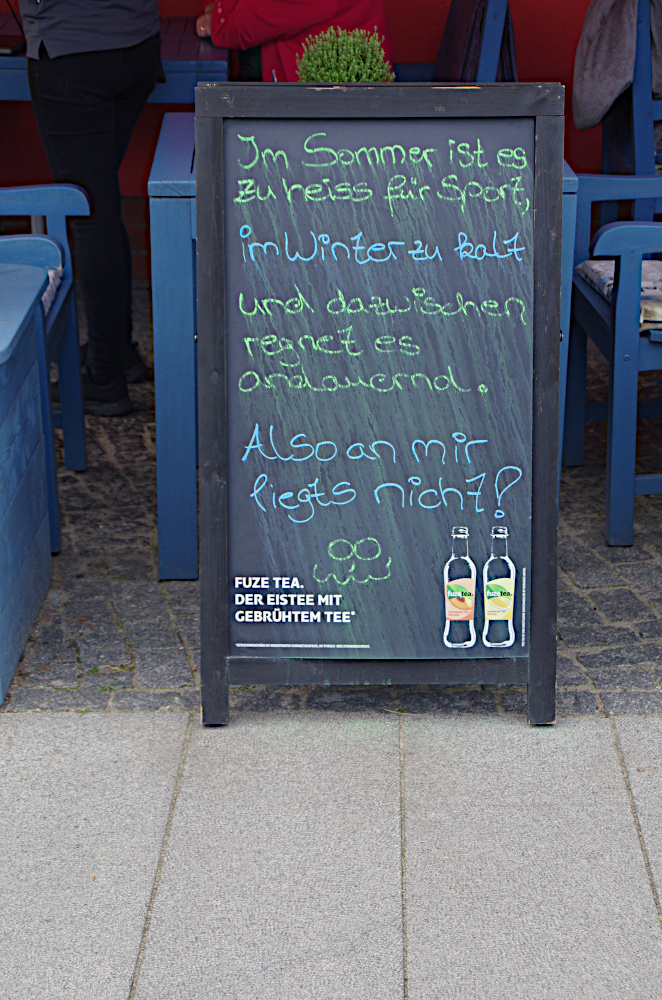 Im Sommer ist es
zu heiss für Sport,
im Winter zu kalt
und dazwischen
regnet es
andauernd.
Also an mir
liegts nicht!
FUZE TEA.
DER EISTEE MIT
GEBRÜHTEM TEE*
fuzetea.
fuzetea.